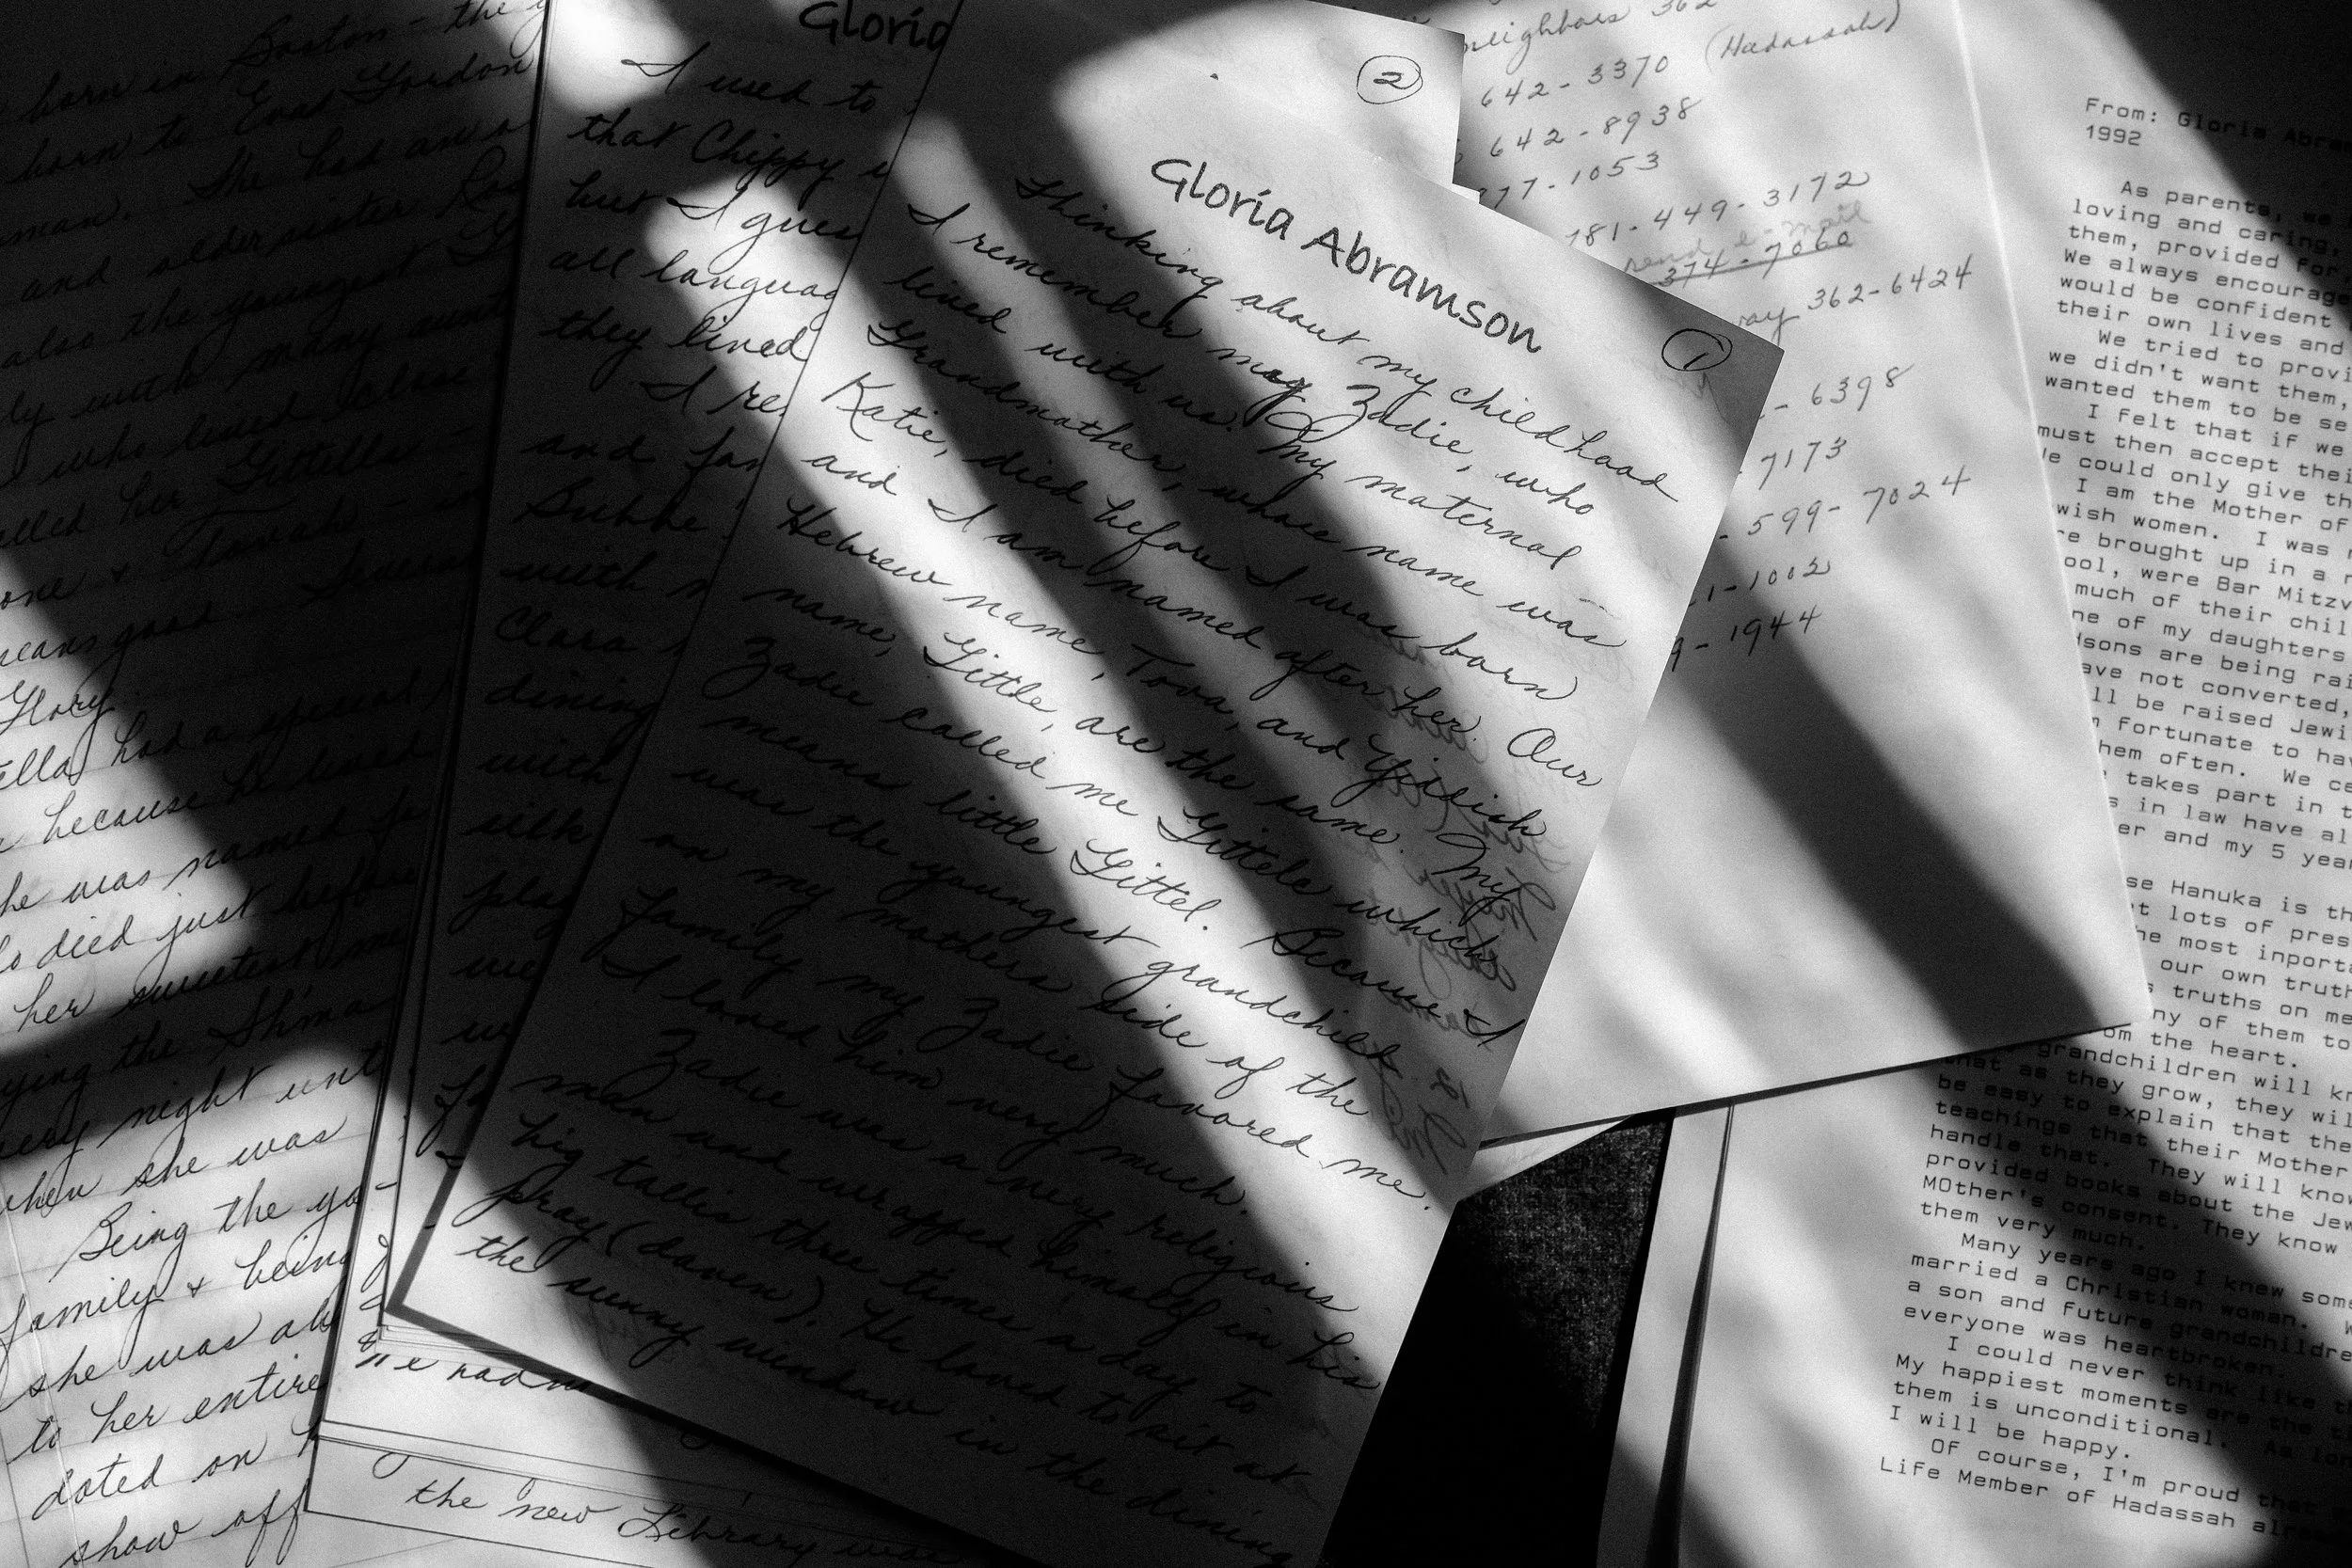 Boston - the
born in
born to Evas Gordon
man. She had an
and older sister Ros
also the youngest
ly with many aunt
who lived close
alled her Gittella
one + Tovah - in
means good. Several
Glory
tella) had a special
because he loved
he was named
o died just before
her sweetest me
ying the Sh'ma
very night unt
when she was
Being the yo-
family & being
she was ab
to her entire
doted on h
show off
Gloria
I used to
that Chippy
but I gues
all languag
they lived
I re
and fan
Bubbe
with m
Clara
dining
with
silk
play
we
the new Library was
2
Gloria Abramson
1
Thinking about my childhood
I remember my Zadie, who
lived with us. My maternal
Grandmother, whose name was
Katie, died before I was born
and I am named after her. Our
Hebrew name, Tova, and Yiddish
name, Gittle, are the same. My
Zadie called me Gittele which
means little Gittel. Because I
was the youngest grandchild
on my mothers side of the
family my Zadie favored me.
I loved him very much.
Zadie was a very religious
man and wrapped himself in his
big tallis three times a day to
pray (daven). He loved to sit at
the sunny window in the dining
neighbors 362
642-3370 (Hadassah)
642-8938
77-1053
781-449-3172
send e-mail
374-7060
ay 362-6424
- 6398
- 7173
- 599-7024
1-1002
9-1944
From: Gloria Abram
1992
As parents, we
loving and caring,
them, provided for
We always encourage
would be confident
their own lives and
We tried to provi
we didn't want them,
wanted them to be se
I felt that if we
must then accept thei
We could only give th
I am the Mother of
wish women. I was
re brought up in a
ool, were Bar Mitzv
much of their chil
ne of my daughters
dsons are being rai
ave not converted,
ll be raised Jewi
fortunate to hav
hem often. We ce
takes part in t
s in law have al
er and my 5 year
se Hanuka is th
t lots of pres
he most inporta
our own truth
s truths on me
ny of them to
om the heart.
grandchildren will kn
that as they grow, they wil
be easy to explain that the
teachings that their Mother
handle that. They will know
provided books about the Jew
MOther's consent. They know
them very much.
Many years ago I knew some
married a Christian woman. W
a son and future grandchildre
everyone was heartbroken.
I could never think like th
My happiest moments are the t
them is unconditional. As lon
I will be happy.
Of course, I'm proud that
Life Member of Hadassah alr